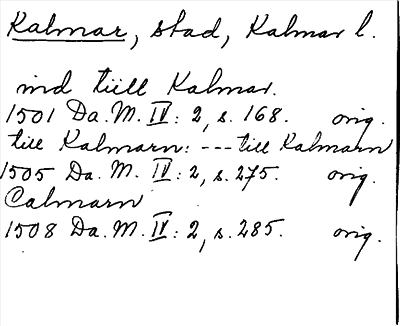 Kalmar, stad, Kalmar l.
ind tiill Kalmar.
1501 Da. M. IV: 2, s. 168. orig.
till Kalmarn: --- till Kalmarn
1505 Da. M. IV: 2, s. 275. orig.
Calmarn
1508 Da. M. IV: 2, s. 285. orig.